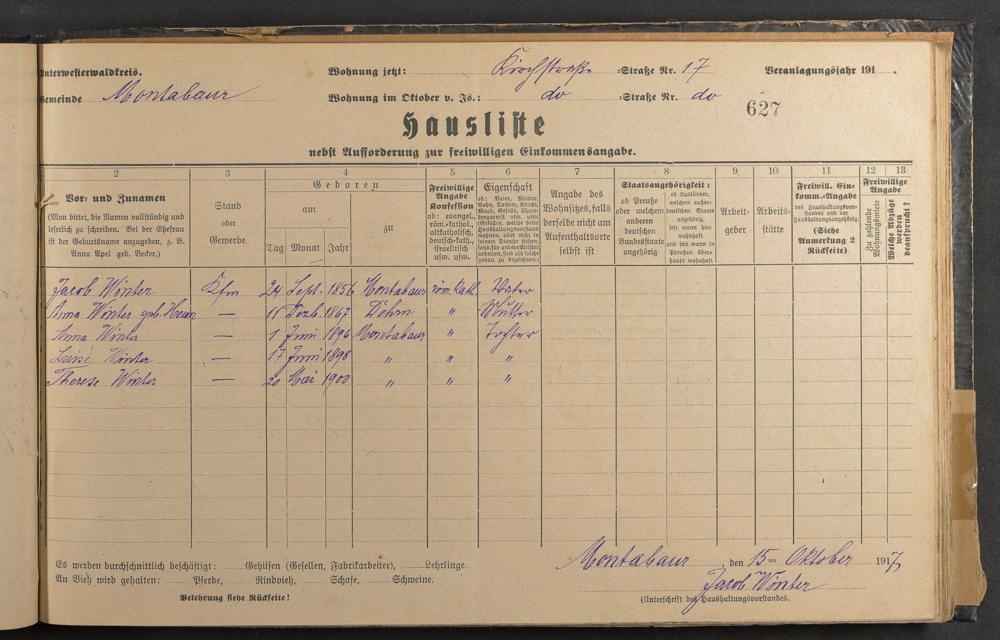 Unterwesterwaldkreis. Wohnung jetzt: Kirchstraße =Straße Nr. 17 Veranlagungsjahr 191 .
Gemeinde Montabaur Wohnung im Oktober v. Js.: do =Straße Nr. do
627
Hausliste
nebst Aufforderung zur freiwilligen Einkommensangabe.
2 3 4 5 6 7 8 9 10 11 12 13
Vor- und Zunamen
(Man bittet, die Namen vollständig und
leserlich zu schreiben. Bei der Ehefrau
ist der Geburtsname anzugeben, z. B.
Anna Apel geb. Becker.)
Stand
oder
Gewerbe.
Geboren
am
zu
Tag Monat Jahr
Freiwillige
Angabe
Konfession
ob: evangel.,
röm.-kathol.,
altkatholisch,
deutsch-kath.,
israelitisch
usw. usw.
Eigenschaft
ob: Vater, Mutter,
Sohn, Tochter, Knecht,
Magd, Geselle,
Angabe des
Wohnsitzes, falls
derselbe nicht am
Aufenthaltsorte
selbst ist
Staatsangehörigkeit:
ob Preuße
oder welchem
anderen
deutschen
Bundesstaate
angehörig
ob Ausländer,
welchem außer-
deutschen Staate
angehörig,
seit wann hier
wohnhaft
und seit wann in
Preußen über-
haupt wohnhaft
Arbeit-
geber
Arbeits-
stätte
Freiwill. Ein-
komm.-Angabe
des Haushaltungsvor-
standes und der
Haushaltungsangehörig.
(Siehe
Anmerkung 2
Rückseite)
Freiwillige
Angabe
Zu zahlende
Wohnungsmiete
Welche Abzüge
werden
beansprucht?
Jacob Winter Kfm 24 Sept. 1856 Montabaur röm. kath. Vater
Anna Winter geb. — 15 Dezb. 1867 Dehrn " Mutter
Anna Winter — 1 Juni 1896 Montabaur " Tochter
Luise Winter — 17 Juni 1898 " " "
Therese Winter — 20 Mai 1900 " " "
Es werden durchschnittlich beschäftigt: Gehilfen (Gesellen, Fabrikarbeiter), Lehrlinge.
An Vieh wird gehalten: Pferde, Rindvieh, Schafe, Schweine.
Belehrung siehe Rückseite!
Montabaur, den 15ten Oktober 1917
Jacob Winter
(Unterschrift des Haushaltungsvorstandes.